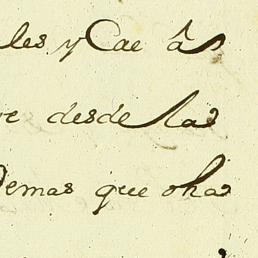 les y Cae â
e desde las
Demas que oha